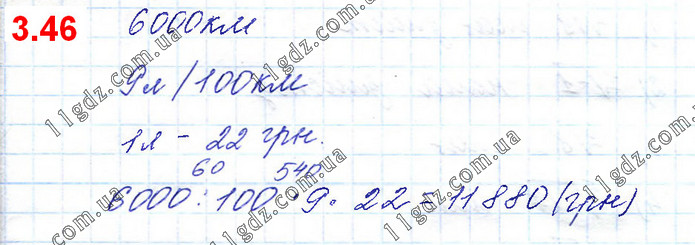 3.46
6000км
9л/100км
1л - 22 грн.
60 540
6000:100·9·22=11880(грн)
11gdz.com.ua
11gdz.com.ua
11gdz.com.ua
11gdz.com.ua
11gdz.com.ua
11gdz.com.ua